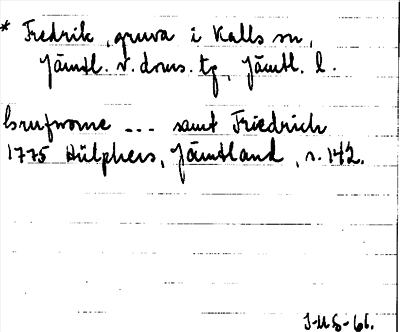 * Fredrik, gruva i Kalls sn,
Jämtl. v. doms. tg, Jämtl. l.
Grufworne ... samt Friedrich
1775 Hülphers, Jämtland, s. 142.